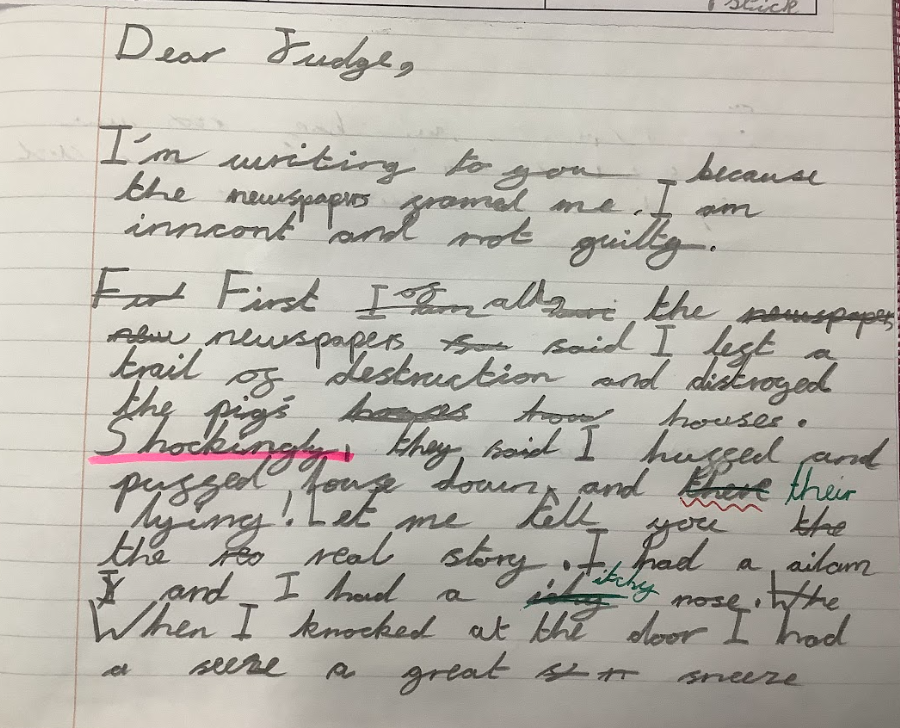 stick
Dear Judge,
I'm writing to you because
the newspapers framed me. I am
inncont and not guilty.
First First I am of all, the newspapers
new newspapers said I left a
trail of destruction and distroyed
the pig's houses. 
Shockingly, they said I huffed and
puffed house down and there their
lying! Let me tell you the
the reo real story. I had a ailam
I and I had a itchy nose. Whe
When I knocked at the door I had
a seeze a great sneeze